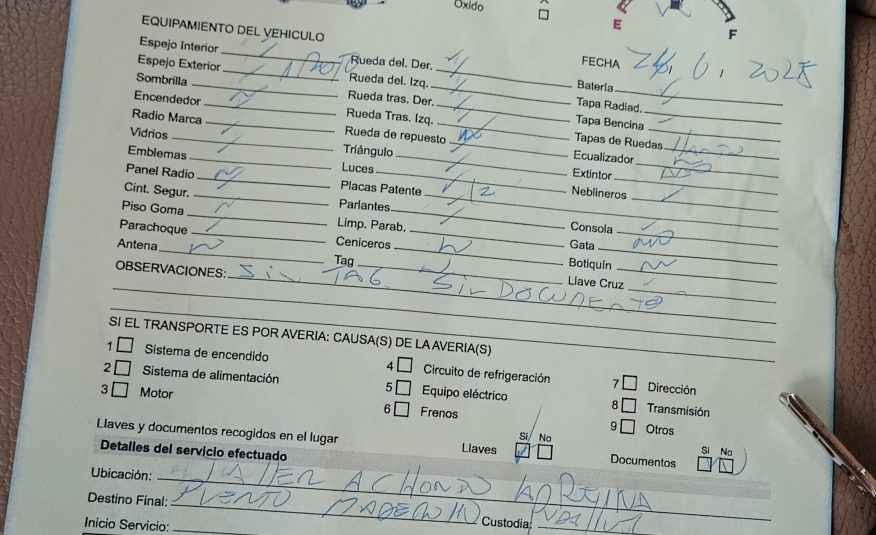 Oxido
E F
EQUIPAMIENTO DEL VEHICULO
FECHA 24, 6, 2025
Espejo Interior
Espejo Exterior 1 ROTO
Sombrilla
Encendedor
Radio Marca
Vidrios
Emblemas
Panel Radio
Cint. Segur.
Piso Goma
Parachoque
Antena
Rueda del. Der.
Rueda del. Izq.
Rueda tras. Der.
Rueda Tras. Izq.
Rueda de repuesto NO
Triángulo
Luces
Placas Patente 12
Parlantes
Limp. Parab.
Ceniceros
Tag
Batería
Tapa Radiad.
Tapa Bencina
Tapas de Ruedas
Ecualizador
Extintor NO
Neblineros
Consola
Gata NO
Botiquín
Llave Cruz
OBSERVACIONES: Sin TAG Sin DOCUMENTO
SI EL TRANSPORTE ES POR AVERIA: CAUSA(S) DE LA AVERIA(S)
1 Sistema de encendido
2 Sistema de alimentación
3 Motor
4 Circuito de refrigeración
5 Equipo eléctrico
6 Frenos
7 Dirección
8 Transmisión
9 Otros
Llaves y documentos recogidos en el lugar
Llaves Si No
Documentos Si No
Detalles del servicio efectuado
Ubicación: TALLER ACHONDO LA REINA
Destino Final: PUENTO MADERO
Custodia:
Inicio Servicio: